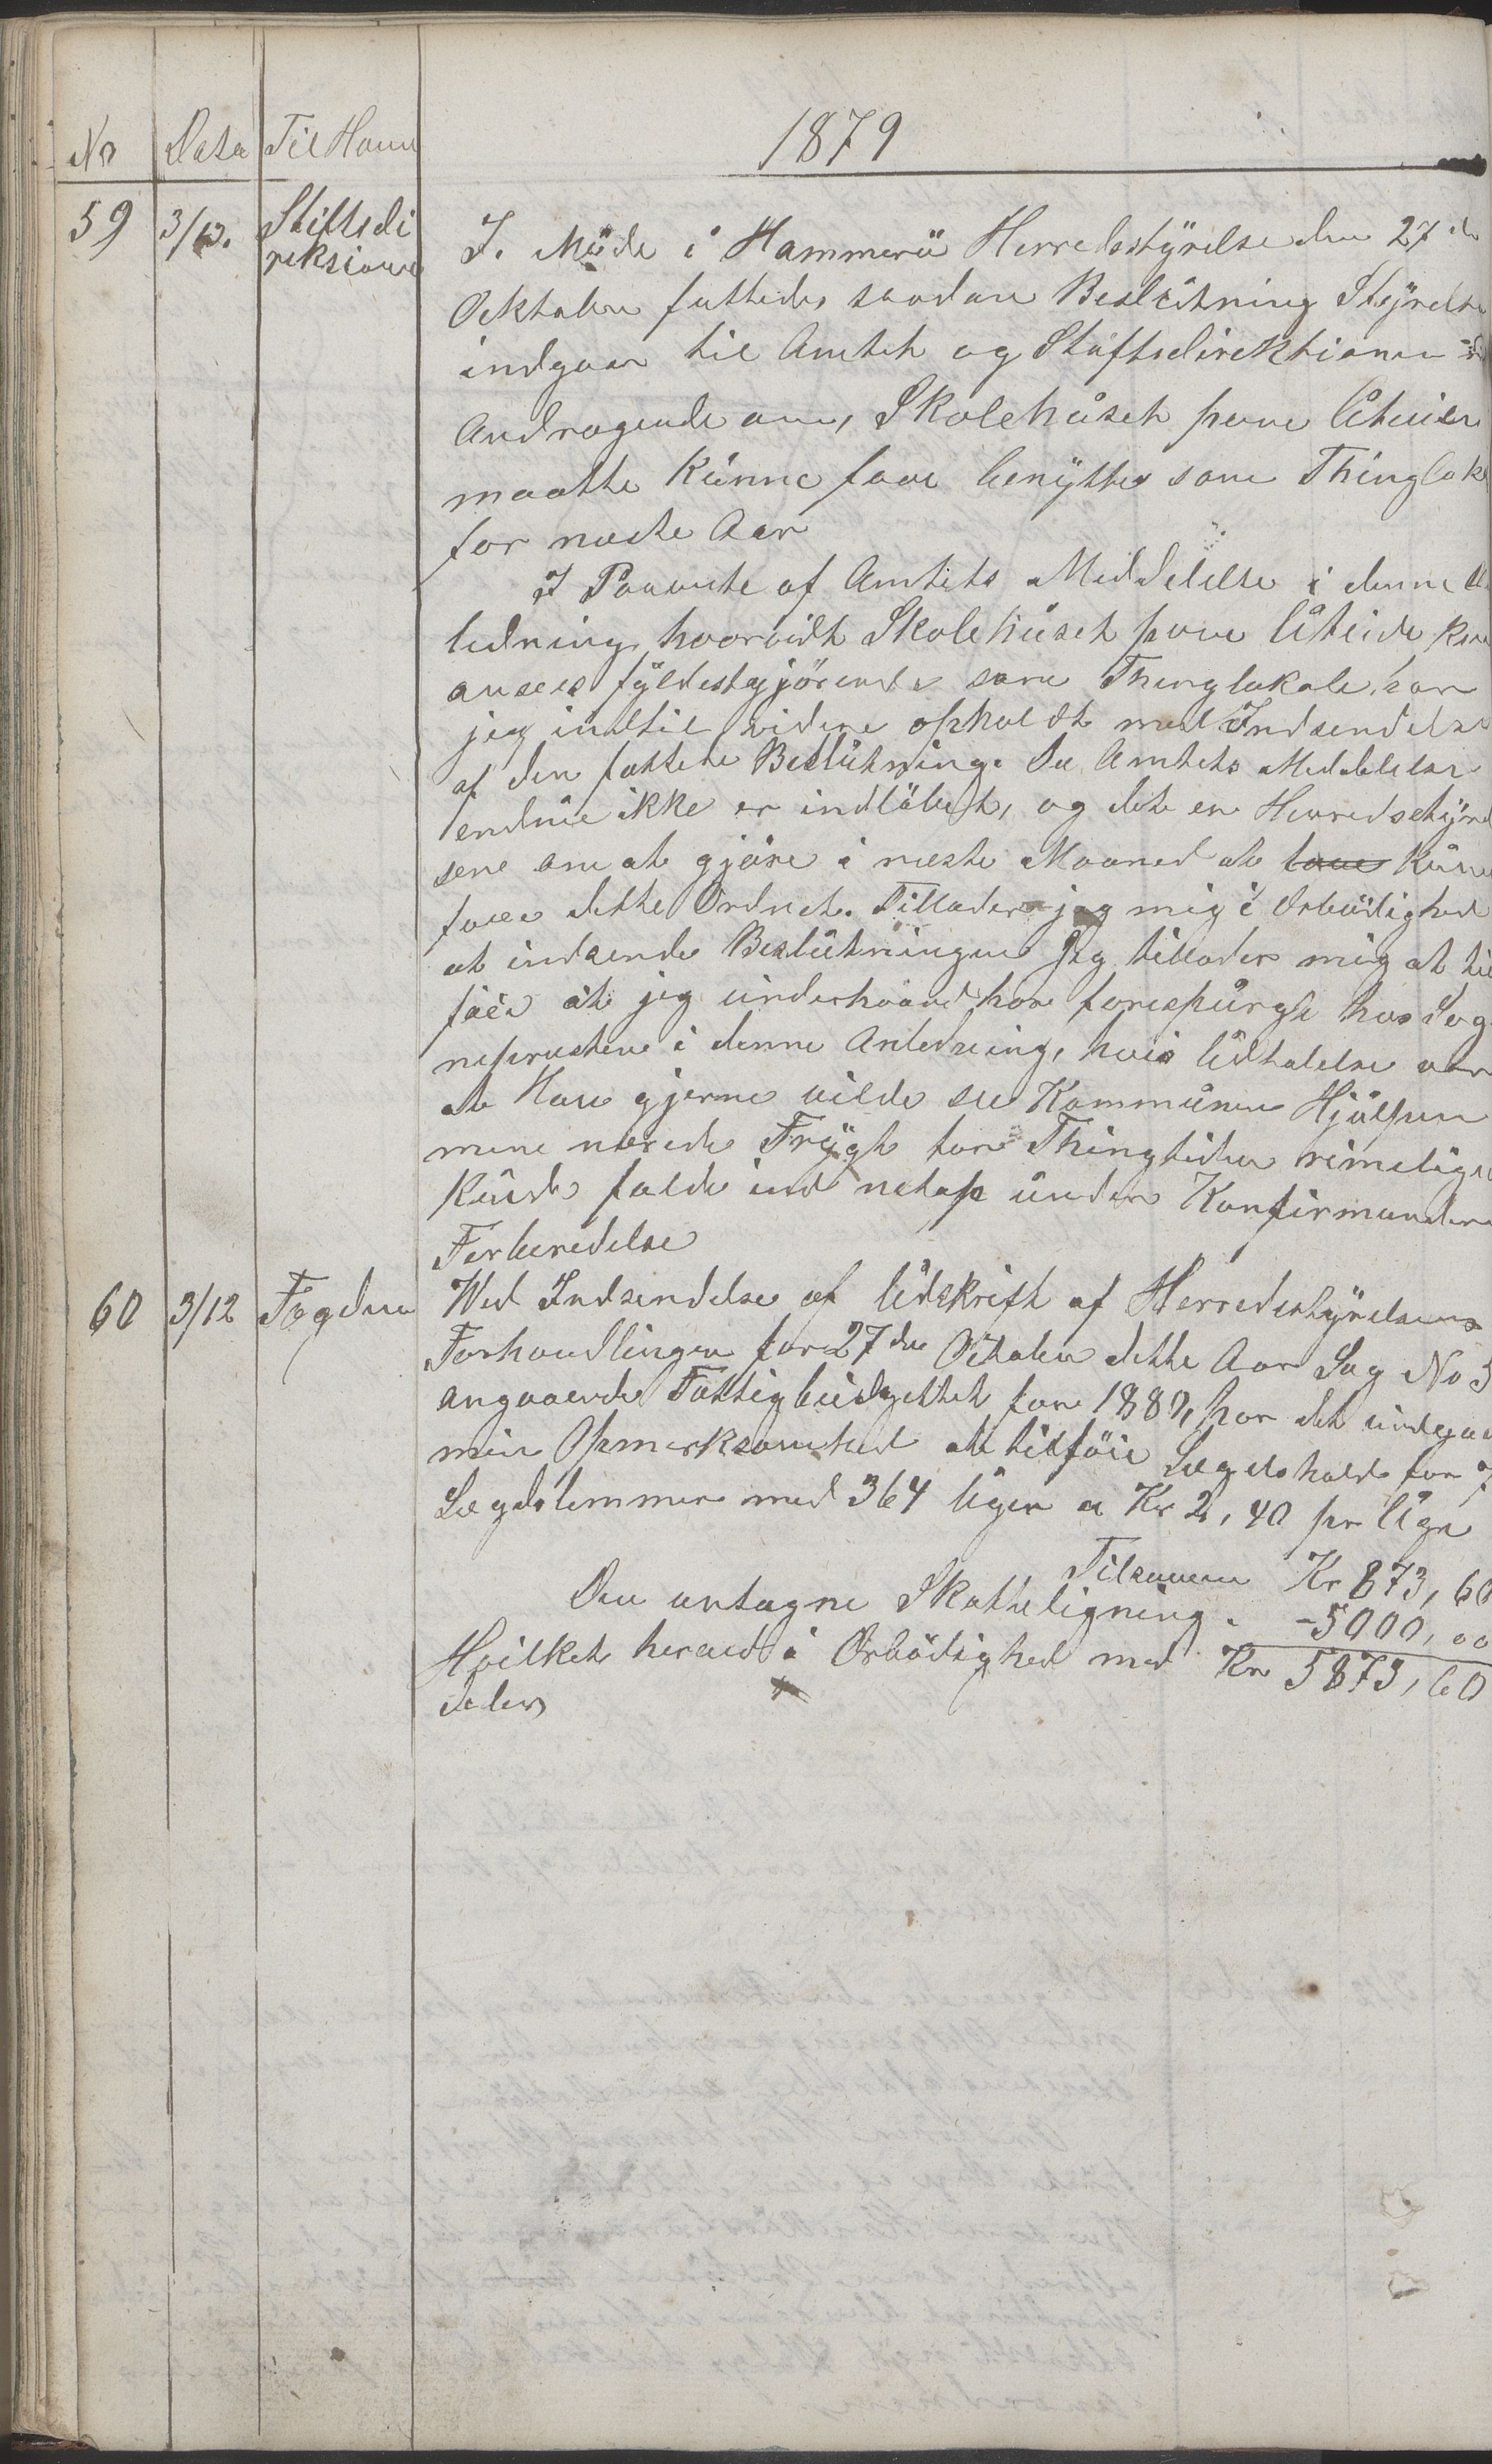 1879
No Data Til Hvem
59 3/12. Stiftsdi
reksionen
I. Möde i Hammerö Herredsstyrelse den 27de
Oektober fattedes saadan Beslutning Styrelsen
indgaar til Amtet og Stiftsdirektionen
Andragende om, Skolehuset paa Uteide
maatte Kunne faae benyttes som Thinglok
for næste Aar
I Paavente af Amtets Meddelelse i denne
ledning, hvorvidt Skolehuset paa Uteide kan
ansees fyldestgjörende som Thinglokale, har
jeg indtil videre opholdt med Indsendelse
af den fattede Beslutning. Da Amtets Meddelelse
endnu ikke er indlöbet, og det er Herredsstyrel
sen om at gjöre i næste Maaned at faae Kune
faae dette Ordnet. Tillader jeg mig i Ærbödighed
at indsende Beslutningen Jeg tillader mig at til
föie at jeg underhaand har forespurgt hos Sog
nepresten i denne Anledning, hvis Udtalelse var
at Han gjerne vilde see Kommunen Hjulpen
men nærede Frygt for Thingtiden rimeligvi
Kunde falde ind netop under Konfirmandern
Forberedelse
60 3/12 Fogden Wed Indsendelse af Udskrift af Herredsstyrelsens
Forhandlinger for 27de Octobe dette Aar Sag No 3
angaaende Fattigbudgettet for 1880, har det undgaa
min Opmerksomhed at tilföie Lægdshold for 7
Lægdslemmer med 364 Uger a Kr 2,40 pr Uge
Tilsammen Kr 873,60
Den antagne Skatteligning. - 5000,00
Hvilket herved i Ærbödighed med Kr 5873,60
deles